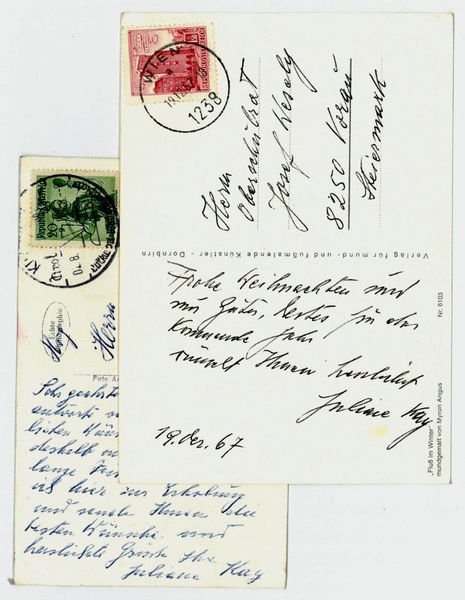 WIEN
1238
Herrn
Oberschulrat
Josef Wesely
8250 Vorau
Steiermark
Verlag für mund- und fußmalende Künstler - Dornbirn
Frohe Weihnachten und
nur Gutes, Bestes für das
Kommende Jahr
Ihnen herzlichst
Juliane Kay
19. Dez. 67
Nr. 6103
„Fluß im Winter"
mundgemalt von Myron Angus
Republik Österreich
Tirol
Echte
Herrn
Foto
Sehr geehrter
antwort
lichen
deshalb
lange
ich hier zur Erholung
und sende Ihnen die
besten Wünsche und
herzlichste Grüße Ihre
Juliane Kay